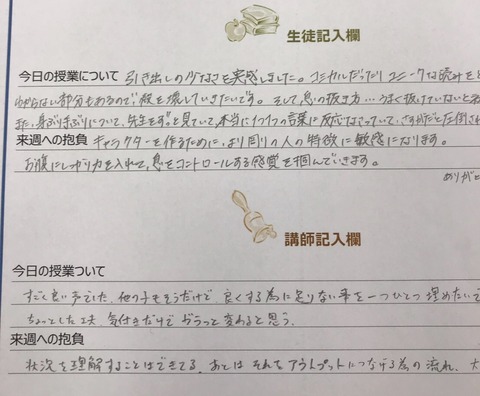 生徒記入欄
今日の授業について 引き出しの少なさを実感しました。コミカルだったりユニークな読みをと
わからない部分もあるので殻を壊していきたいです。そして息の抜き方…うまく抜けていないと
また、身ぶり手ぶりについて、先生をずっと見ていて、本当に1つ1つの言葉に反応なさっていて、さすがだと圧倒され
来週への抱負 キャラクターを作るために、より周りの人の特徴に敏感になります。
お腹にしっかり力を入れて、息をコントロールする感覚を掴んでいきます。
ありが
講師記入欄
今日の授業ついて
すごく良い声でした。他の子もそうだけど、良くする為に足りない事を一つひとつ埋めたいで
ちょっとした工夫、気付きだけでガラっと変わると思う。
来週への抱負
状況を理解することはできてる。あとは それを アウトプットにつなげる為の流れ、大